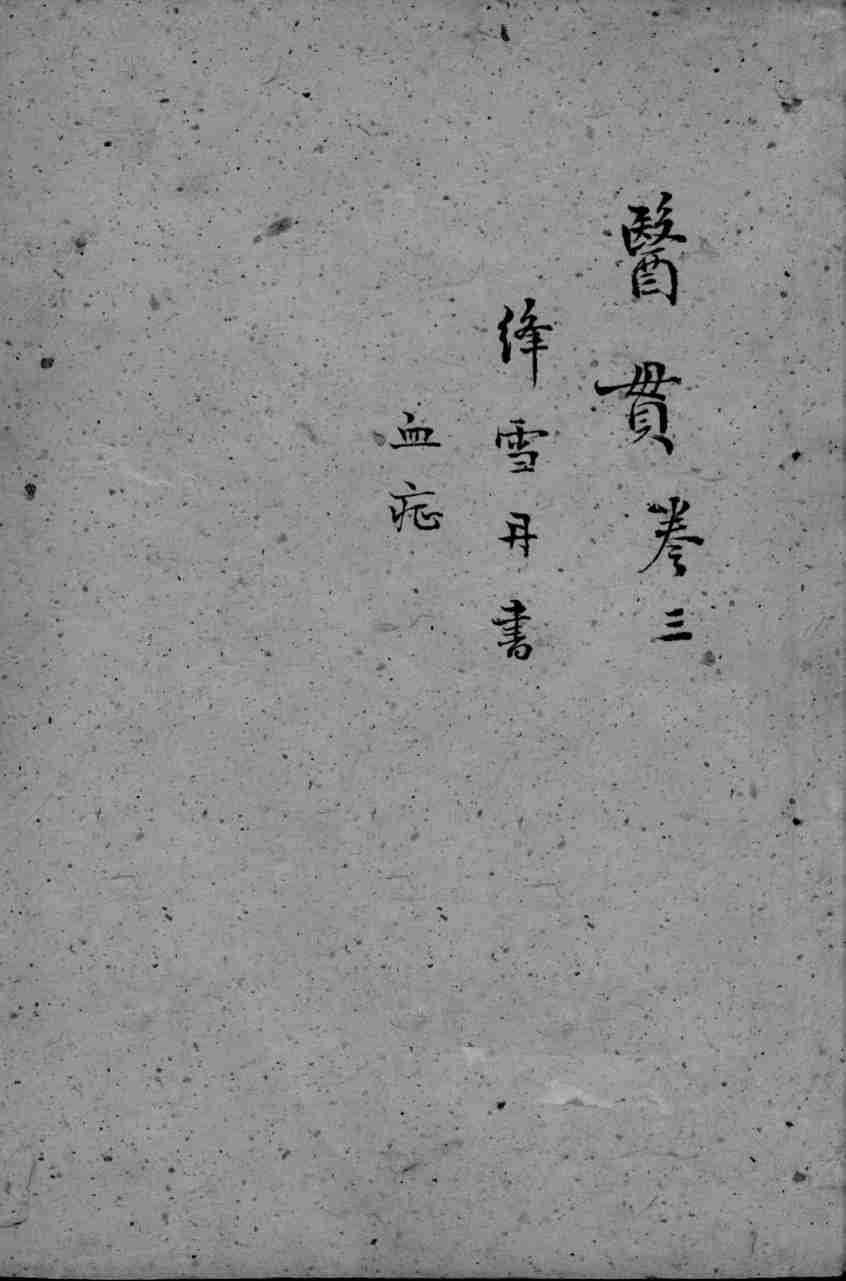 醫貫卷三
絳雪丹書
血症